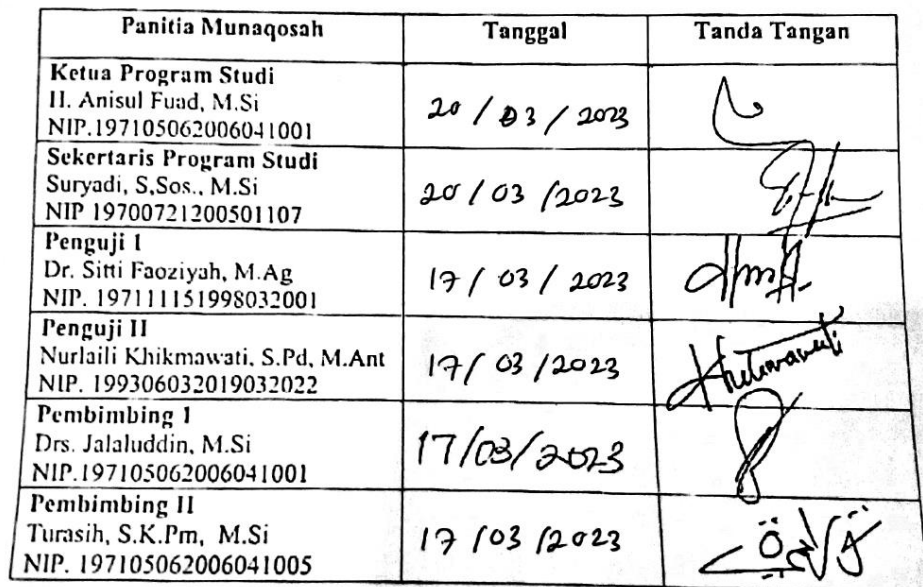 Panitia Munaqosah Tanggal Tanda Tangan
Ketua Program Studi
H. Anisul Fuad, M.Si
NIP.197105062006041001
20 / 03 / 2023
Sekertaris Program Studi
Suryadi, S,Sos., M.Si
NIP 19700721200501107
20 / 03 / 2023
Penguji I
Dr. Sitti Faoziyah, M.Ag
NIP. 197111151998032001
17 / 03 / 2023
Penguji II
Nurlaili Khikmawati, S.Pd, M.Ant
NIP. 199306032019032022
17 / 03 / 2023
Pembimbing I
Drs. Jalaluddin, M.Si
NIP.197105062006041001
17/03/2023
Pembimbing II
Turasih, S.K.Pm, M.Si
NIP. 197105062006041005
17 / 03 / 2023